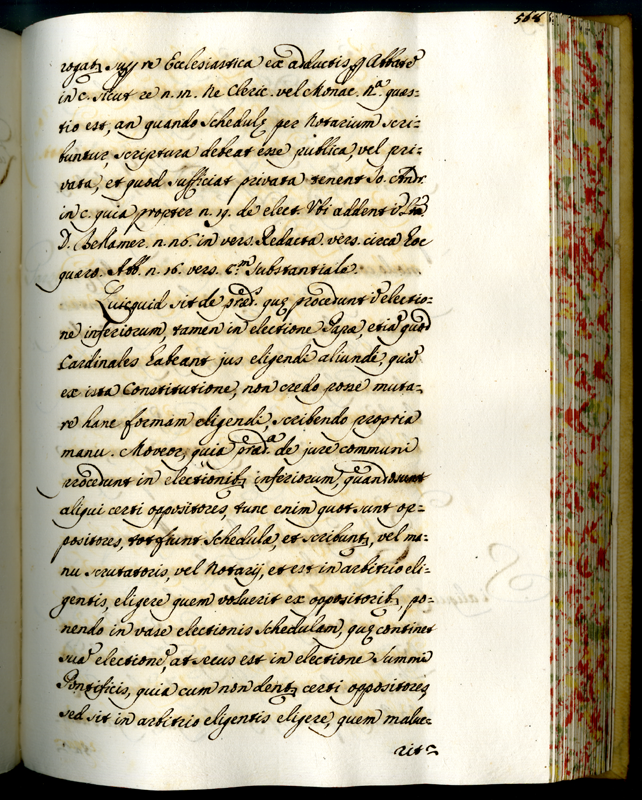 568
rogatz suff re Ecclesiastica ex adductis Abbate
in c. sicut re n. 11. Ne Cleric. vel Monac. nª quæs-
tio est, an quando schedulæ per Notarium scri-
buntur, scriptura debeat esse publica, vel pri-
vata, et quod sufficiat privata tenent Jo. Andr.
in c. quia propter n. 4. de elect. Vbi addent
D. Bellamer. n. 16. in vers. Redacta. vers. circa hoc
quæro. Abb. n. 16. vers. Substantiale.
Quicquid sit de præd. quæ procedunt electio-
ne inferiorum, tamen in electione Papæ, etiã quod
Cardinales habeant jus eligendi aliunde, quã
ex ista Constitutione, non credo posse muta-
re hanc formam eligendi, scribendo propria
manu. Moveor, quia præd.ª de jure communi
procedunt in electionibz inferiorum, quando sunt
aliqui certi oppositores, tunc enim quot sunt op-
positores, tot fiunt schedulæ, et scribuntz, vel ma-
nu scrutatoris, vel Notarij, et est in arbitrio eli-
gentis, eligere quem voluerit ex oppositoribz, po-
nendo in vase electionis schedulam, quæ continet
suã electionẽ, at secus est in electione Summi
Pontificis, quia cum non dentz certi oppositores
sed sit in arbitrio eligentis eligere, quem malue-
rit